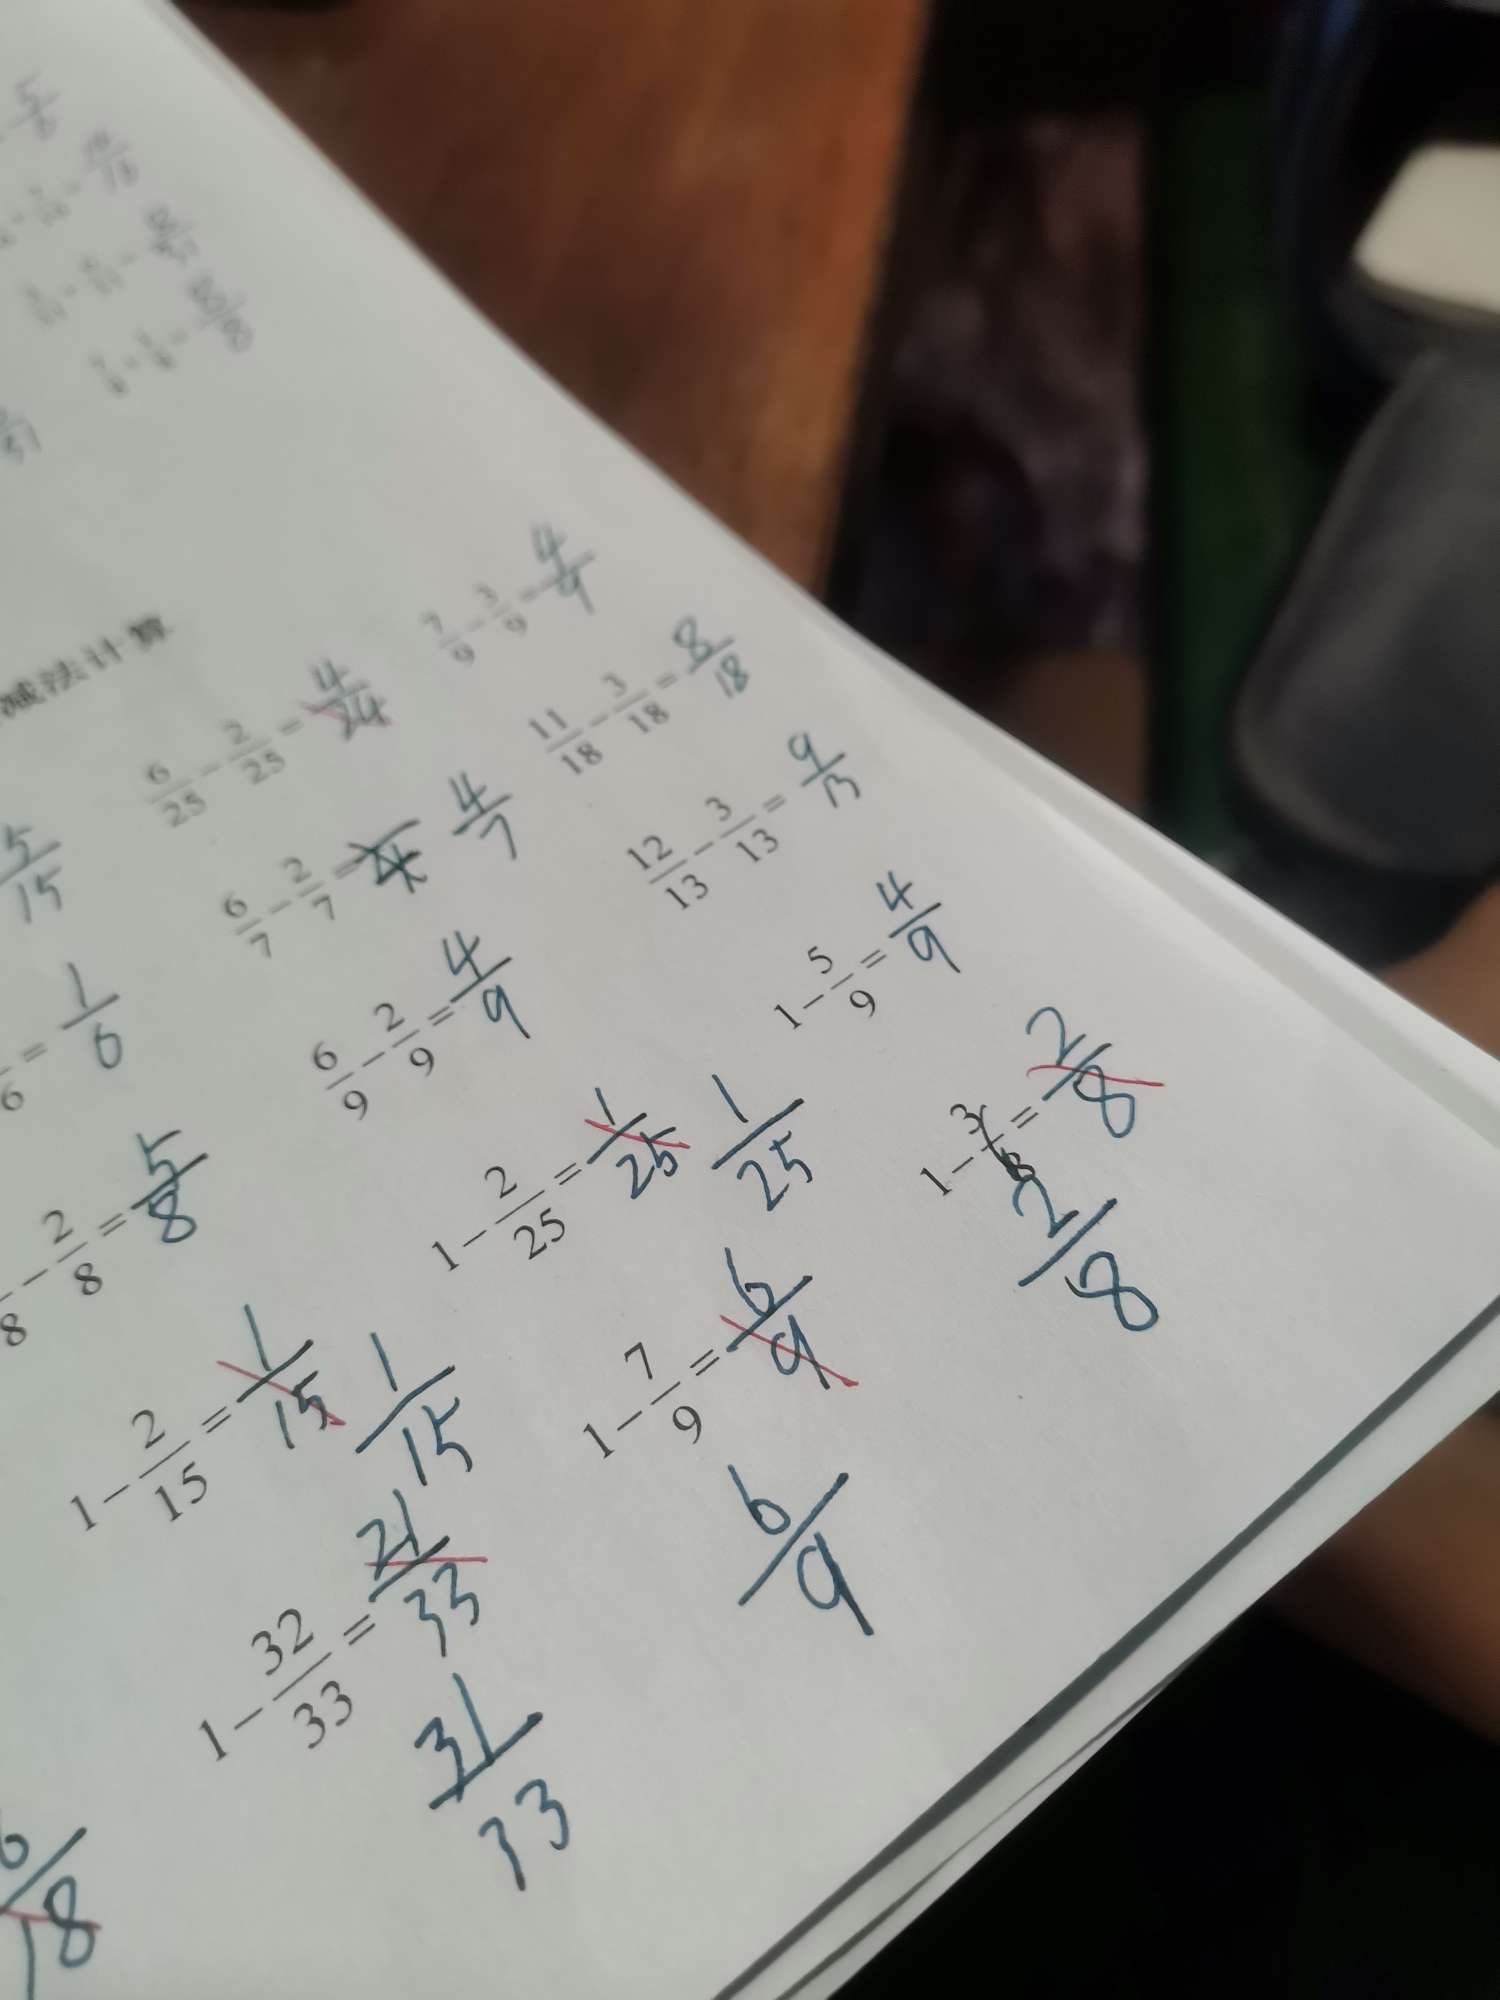 减法计算
7/9 - 3/9 = 4/9
6/25 - 2/25 = 4/24
11/18 - 3/18 = 8/18
5/15
6/7 - 2/7 = 4/7
12/13 - 3/13 = 9/13
6 = 1/6
6/9 - 2/9 = 4/9
1 - 5/9 = 4/9
8 - 2/8 = 5/8
1 - 2/25 = 1/25 1/25
1 - 3/8 = 2/8
2/8
1 - 2/15 = 1/15 1/15
1 - 7/9 = 6/9
6/9
1 - 32/33 = 21/33
31/33
6/18